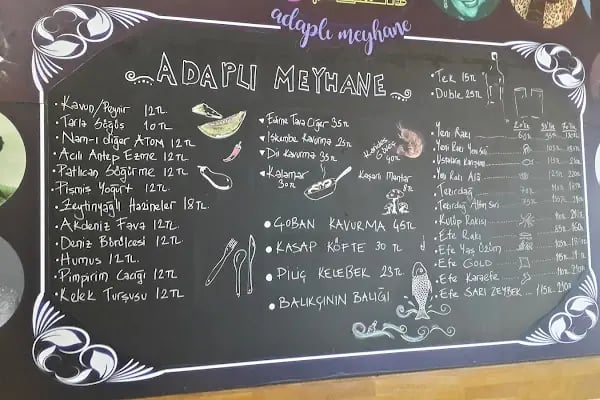 adaplı meyhane
ADAPLI MEYHANE
• Kavun/Peynir 12TL.
• Tarla Söğüş 10TL.
• Nam-ı diğer ATOM 12TL
• Acılı Antep Ezme 12TL.
• Patlıcan Söğürme 12TL
• Pişmiş Yoğurt 12TL.
• Zeytinyağlı Hazineler 18TL.
• Akdeniz Fava 12TL.
• Deniz Börülcesi 12TL
• Humus 12TL
• Pimpirim Cacığı 12TL
• Kelek Turşusu 12TL
Edirne Tava Ciğer 35TL
İşkembe Kavurma 25TL
Dil Kavurma 35TL
Kalamar 30TL
Kaşarlı Mantar
• ÇOBAN KAVURMA 45TL
• KASAP KÖFTE 30TL
• PİLİÇ KELEBEK 23TL
• BALIKÇININ BALIĞI
• Tek 15TL
• Duble 25TL
• Yeni Rakı
• Yeni Rakı Yeni Seri
• Yeni Rakı Ala
• Tekirdağ
• Tekirdağ Altın Seri
• Kulüp Rakısı
• Efe Rakı
• Efe Yaş Üzüm
• Efe GOLD
• Efe Karaefe
• Efe SARI ZEYBEK